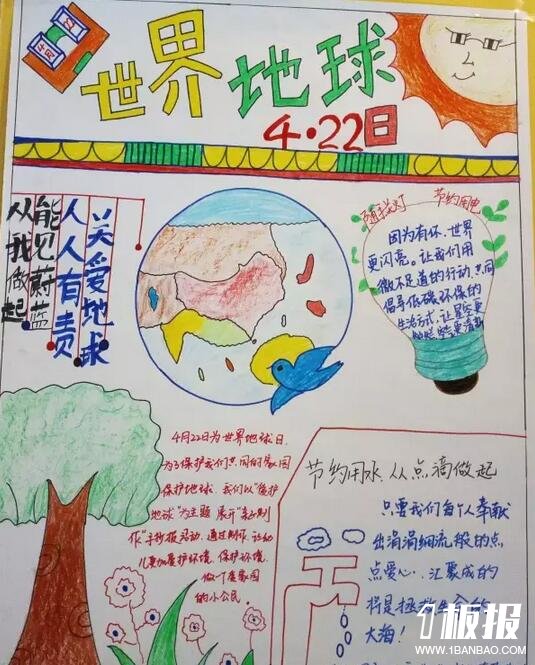 世界地球
4·22日
关爱地球
人人有责
能见蔚蓝
从我做起
随手关灯
节约用电
因为有你,世界
更闪亮。让我们用
微不足道的行动,共同
倡导低碳环保的
生活方式,让星空更
灿烂
4月22日为世界地球日,
为了保护我们共同的家园
保护地球,我们以
地球"为主题,展开
作"手抄报活动,通过制作,让幼
儿更加爱护环境,保护环境,
做一个爱家园
的小公民。
节约用水,从点滴做起
只要我们每个人奉献
出涓涓细流般的点
点爱心,汇聚成的
将是拯救生命的
大海!
板报
WWW.1BANBAO.COM